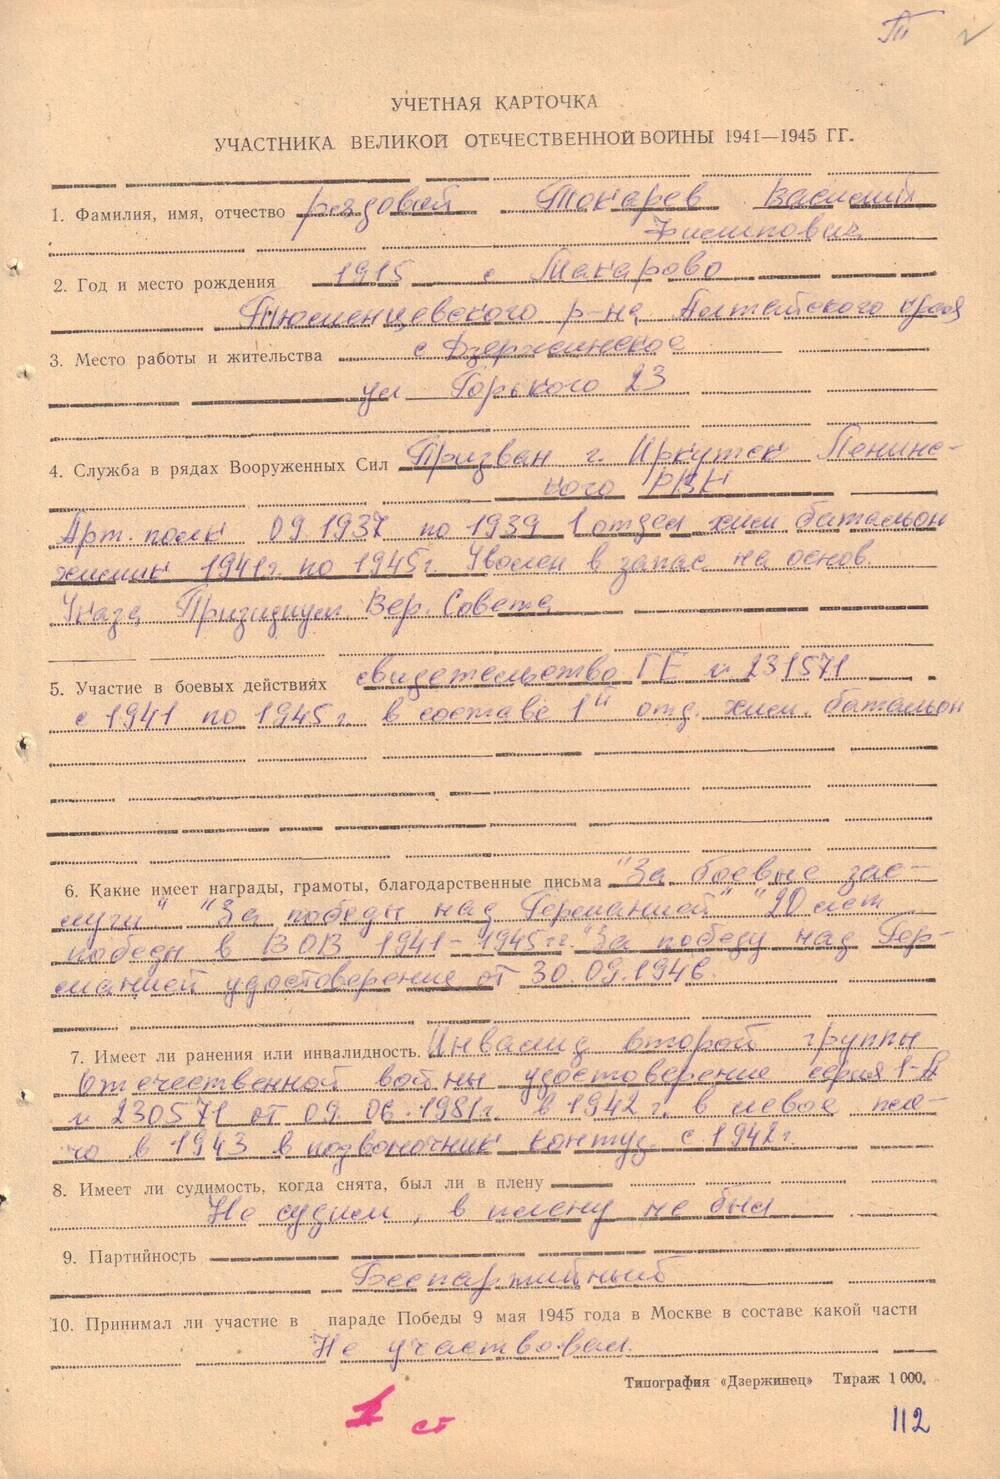 УЧЕТНАЯ КАРТОЧКА
УЧАСТНИКА ВЕЛИКОЙ ОТЕЧЕСТВЕННОЙ ВОЙНЫ 1941—1945 ГГ.
1. Фамилия, имя, отчество рядовой Токарев Василий
Филиппович
2. Год и место рождения 1915 с Макарово
Тюменцевского р-на Алтайского края
3. Место работы и жительства с Дзержинское
ул Горького 23
4. Служба в рядах Вооруженных Сил Призван г. Иркутск Ленинс-
кого РВК
Арт. полк 09.1937 по 1939 1 отдел хим батальон
химик 1941г. по 1945г. Уволен в запас на основ.
Указа Призидиум. Вер. Совета
5. Участие в боевых действиях свидетельство ГЕ № 231571
с 1941 по 1945 г. в составе 1й отд. хим. батальон
6. Какие имеет награды, грамоты, благодарственные письма "За боевые зас-
луги" "За победы над Германией" "20 лет
победы в ВОВ 1941-1945гг. "За победу над Гер-
манией удостоверение от 30.09.1946.
7. Имеет ли ранения или инвалидность. Инвалид второй группы
Отечественной войны удостоверение серия 1-
№ 230571 от 09.06.1981г. в 1942 г. в левое пле-
чо в 1943 в позвоночник контуз. с 1942г.
8. Имеет ли судимость, когда снята, был ли в плену
Не судим, в плену не был
9. Партийность
Беспартийный
10. Принимал ли участие в параде Победы 9 мая 1945 года в Москве в составе какой части
Не участвовал.
Типография «Дзержинец» Тираж 1 000.
ст
112